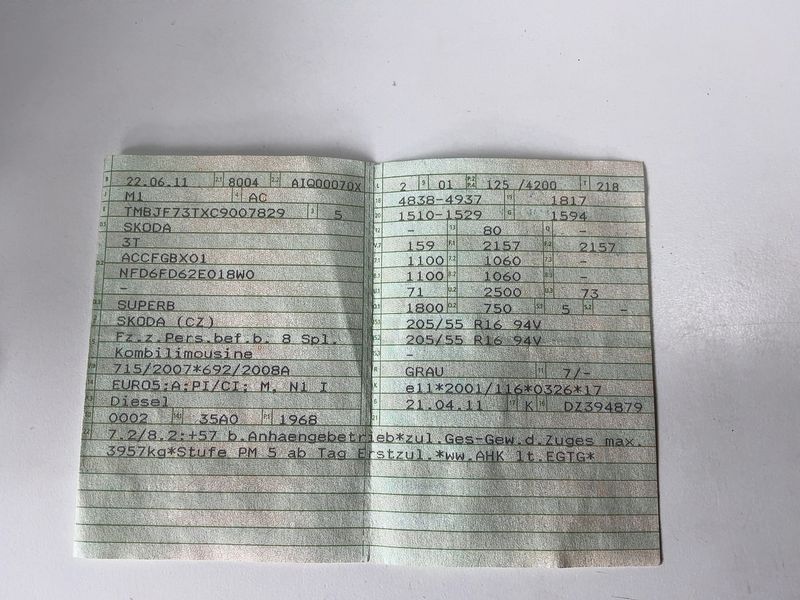 22.06.11 8004 AIQ00070X
M1 AC
TMBJF73TXC9007829 5
SKODA
3T
ACCFGBX01
NFD6FD62E018W0
-
SUPERB
SKODA (CZ)
Fz.z.Pers.bef.b. 8 Spl.
Kombilimousine
715/2007*692/2008A
EURO5;A;PI/CI; M, N1 I
Diesel
0002 35A0 1968
2 01 125 /4200 218
4838-4937 1817
1510-1529 1594
- 80 -
159 2157 2157
1100 1060 -
1100 1060 -
71 2500 73
1800 750 5 -
205/55 R16 94V
205/55 R16 94V
-
GRAU 7/-
e11*2001/116*0326*17
21.04.11 K DZ394879
7.2/8.2:+57 b.Anhaengebetrieb*zul.Ges-Gew.d.Zuges max.
3957kg*Stufe PM 5 ab Tag Erstzul.*ww.AHK lt.EGTG*